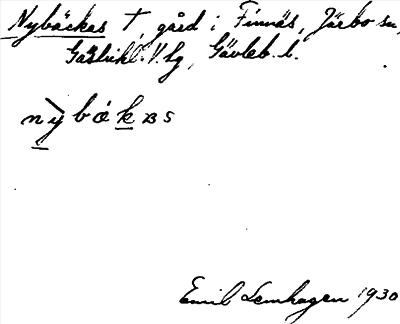 Nybäckas †, gård i Finnäs, Järbo sn,
Gästrikl. V. hg, Gävleb. l.
nybakas
Emil Lemhagen 1930